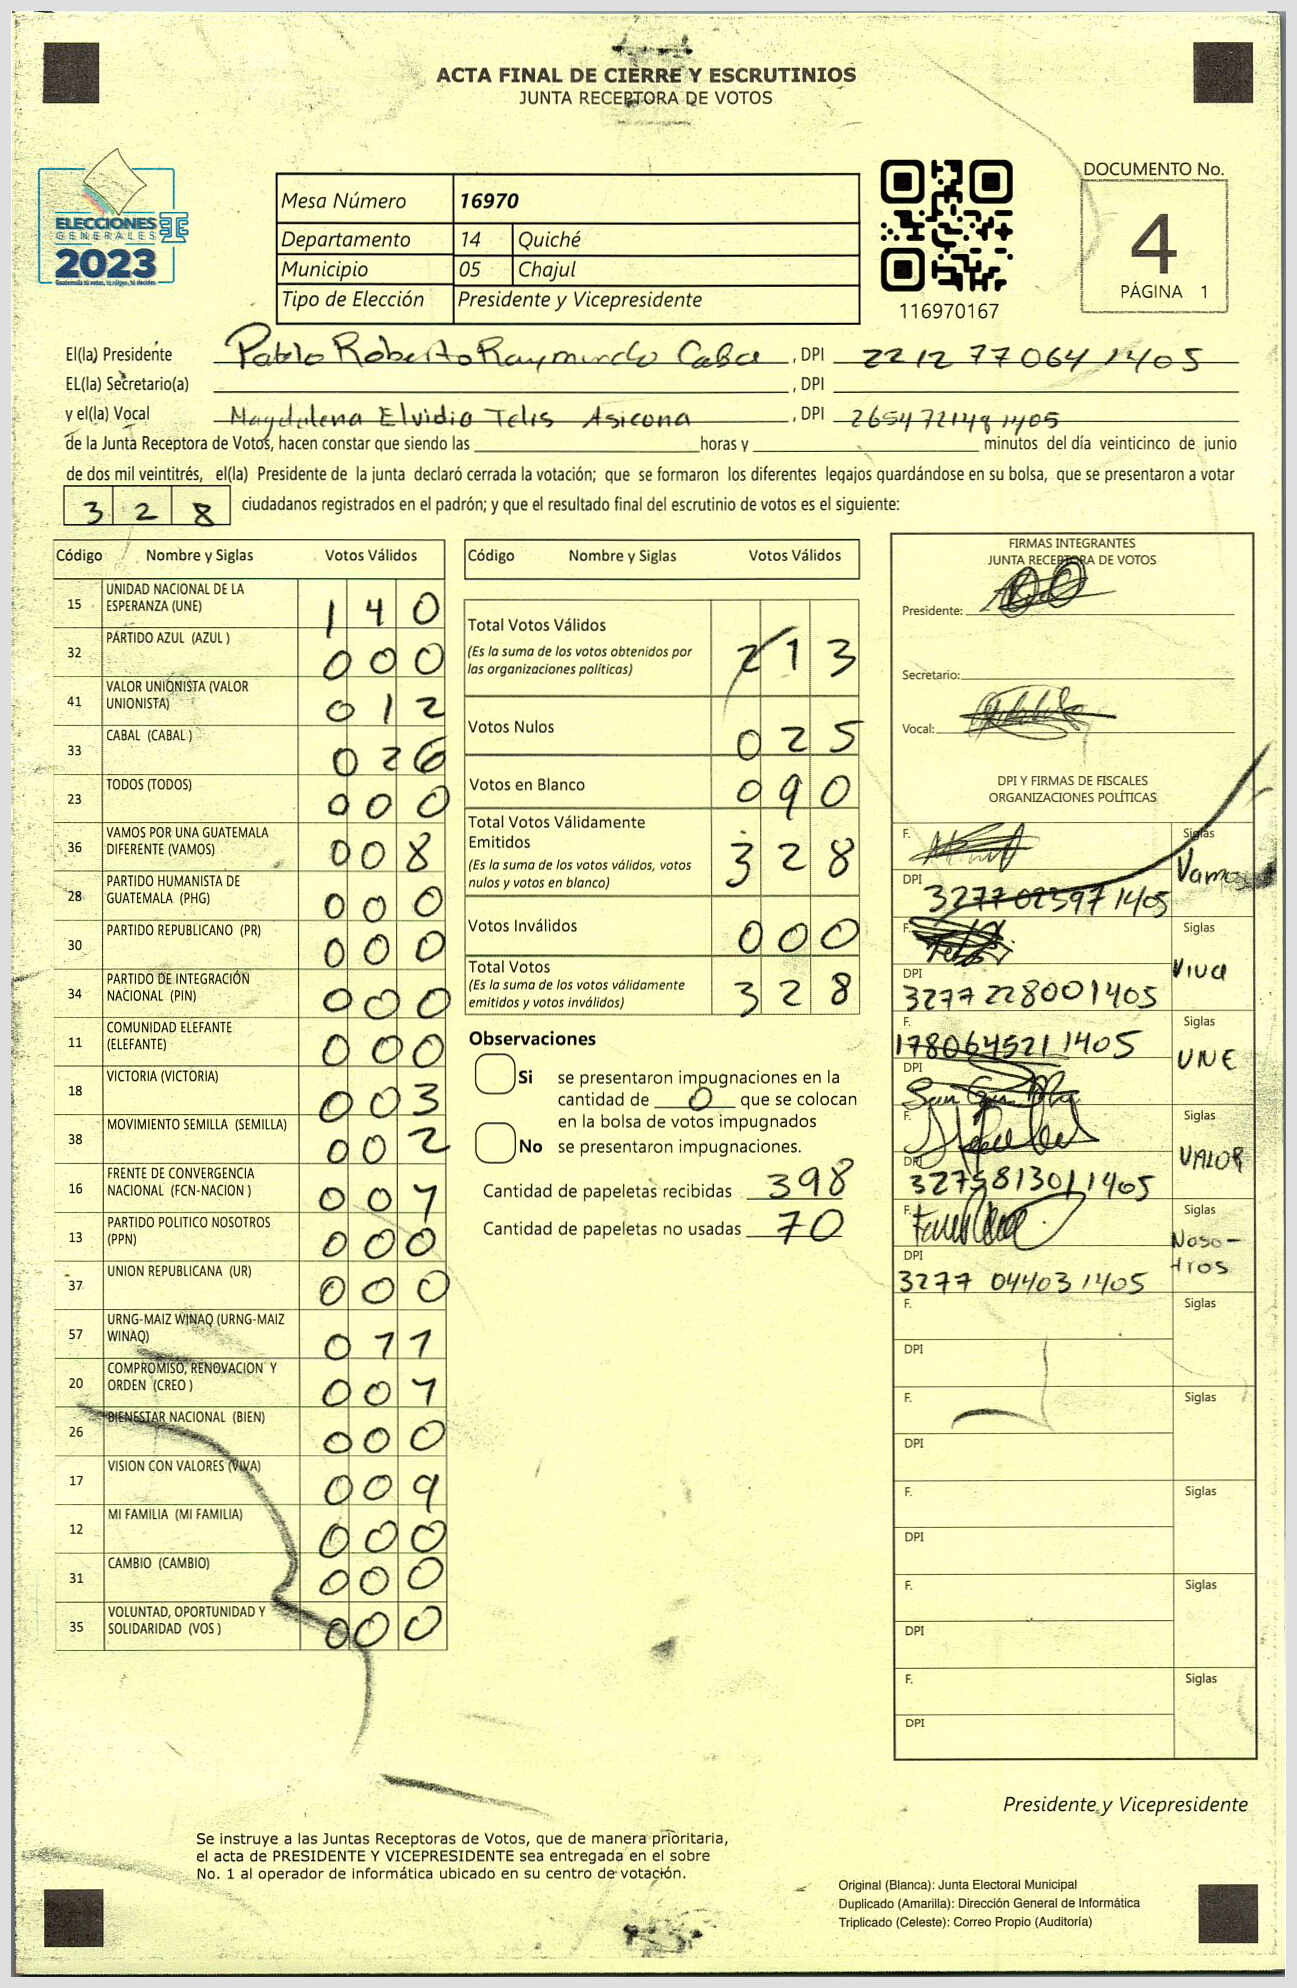 ACTA FINAL DE CIERRE Y ESCRUTINIOS
JUNTA RECEPTORA DE VOTOS
ELECCIONES
GENERALES
2023
Guatemala tú votas, tú eliges, tú decides
Mesa Número 16970
Departamento 14 Quiché
Municipio 05 Chajul
Tipo de Elección Presidente y Vicepresidente
116970167
DOCUMENTO No.
4
PÁGINA 1
El(la) Presidente Pablo Roberto Raymundo Caba, DPI 2212 77064 1405
EL(la) Secretario(a) , DPI
y el(la) Vocal Magdalena Elvidia Telis Asicona, DPI 265472148 1405
de la Junta Receptora de Votos, hacen constar que siendo las horas y minutos del día veinticinco de junio
de dos mil veintitrés, el(la) Presidente de la junta declaró cerrada la votación; que se formaron los diferentes legajos guardándose en su bolsa, que se presentaron a votar
328 ciudadanos registrados en el padrón; y que el resultado final del escrutinio de votos es el siguiente:
Código Nombre y Siglas Votos Válidos
15 UNIDAD NACIONAL DE LA ESPERANZA (UNE) 140
32 PARTIDO AZUL (AZUL ) 000
41 VALOR UNIONISTA (VALOR UNIONISTA) 012
33 CABAL (CABAL ) 026
23 TODOS (TODOS) 000
36 VAMOS POR UNA GUATEMALA DIFERENTE (VAMOS) 008
28 PARTIDO HUMANISTA DE GUATEMALA (PHG) 000
30 PARTIDO REPUBLICANO (PR) 000
34 PARTIDO DE INTEGRACIÓN NACIONAL (PIN) 000
11 COMUNIDAD ELEFANTE (ELEFANTE) 000
18 VICTORIA (VICTORIA) 003
38 MOVIMIENTO SEMILLA (SEMILLA) 002
16 FRENTE DE CONVERGENCIA NACIONAL (FCN-NACION ) 001
13 PARTIDO POLITICO NOSOTROS (PPN) 000
37 UNION REPUBLICANA (UR) 000
57 URNG-MAIZ WINAQ (URNG-MAIZ WINAQ) 011
20 COMPROMISO, RENOVACION Y ORDEN (CREO ) 001
26 BIENESTAR NACIONAL (BIEN) 000
17 VISION CON VALORES (VIVA) 009
12 MI FAMILIA (MI FAMILIA) 000
31 CAMBIO (CAMBIO) 000
35 VOLUNTAD, OPORTUNIDAD Y SOLIDARIDAD (VOS ) 000
Código Nombre y Siglas Votos Válidos
Total Votos Válidos 213
(Es la suma de los votos obtenidos por
las organizaciones políticas)
Votos Nulos 025
Votos en Blanco 090
Total Votos Válidamente
Emitidos 328
(Es la suma de los votos válidos, votos
nulos y votos en blanco)
Votos Inválidos 000
Total Votos 328
(Es la suma de los votos válidamente
emitidos y votos inválidos)
Observaciones
Si se presentaron impugnaciones en la
cantidad de 0 que se colocan
en la bolsa de votos impugnados
No se presentaron impugnaciones.
Cantidad de papeletas recibidas 398
Cantidad de papeletas no usadas 70
FIRMAS INTEGRANTES
JUNTA RECEPTORA DE VOTOS
Presidente:
Secretario:
Vocal:
DPI Y FIRMAS DE FISCALES
ORGANIZACIONES POLÍTICAS
F. Siglas
Vamos
DPI 3277023971405
F. Siglas
Viva
DPI
3277 228001405
F. Siglas
1780645211405
UNE
DPI
F. Siglas
VALOR
DPI
3275813011405
F. Siglas
Noso-
tros
DPI
3277 04403 1405
F. Siglas
DPI
F. Siglas
DPI
F. Siglas
DPI
F. Siglas
DPI
F. Siglas
DPI
Presidente y Vicepresidente
Se instruye a las Juntas Receptoras de Votos, que de manera prioritaria,
el acta de PRESIDENTE Y VICEPRESIDENTE sea entregada en el sobre
No. 1 al operador de informática ubicado en su centro de votación.
Original (Blanca): Junta Electoral Municipal
Duplicado (Amarilla): Dirección General de Informática
Triplicado (Celeste): Correo Propio (Auditoría)